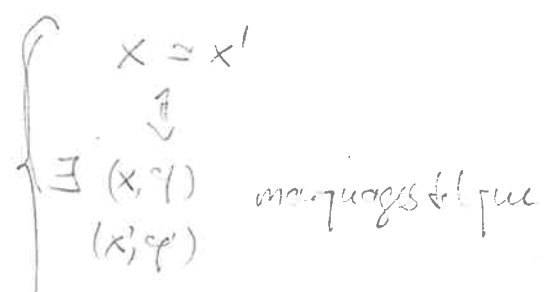 X ≃ X'
⇕
∃ (X, φ) marquages tel que
(X', φ')